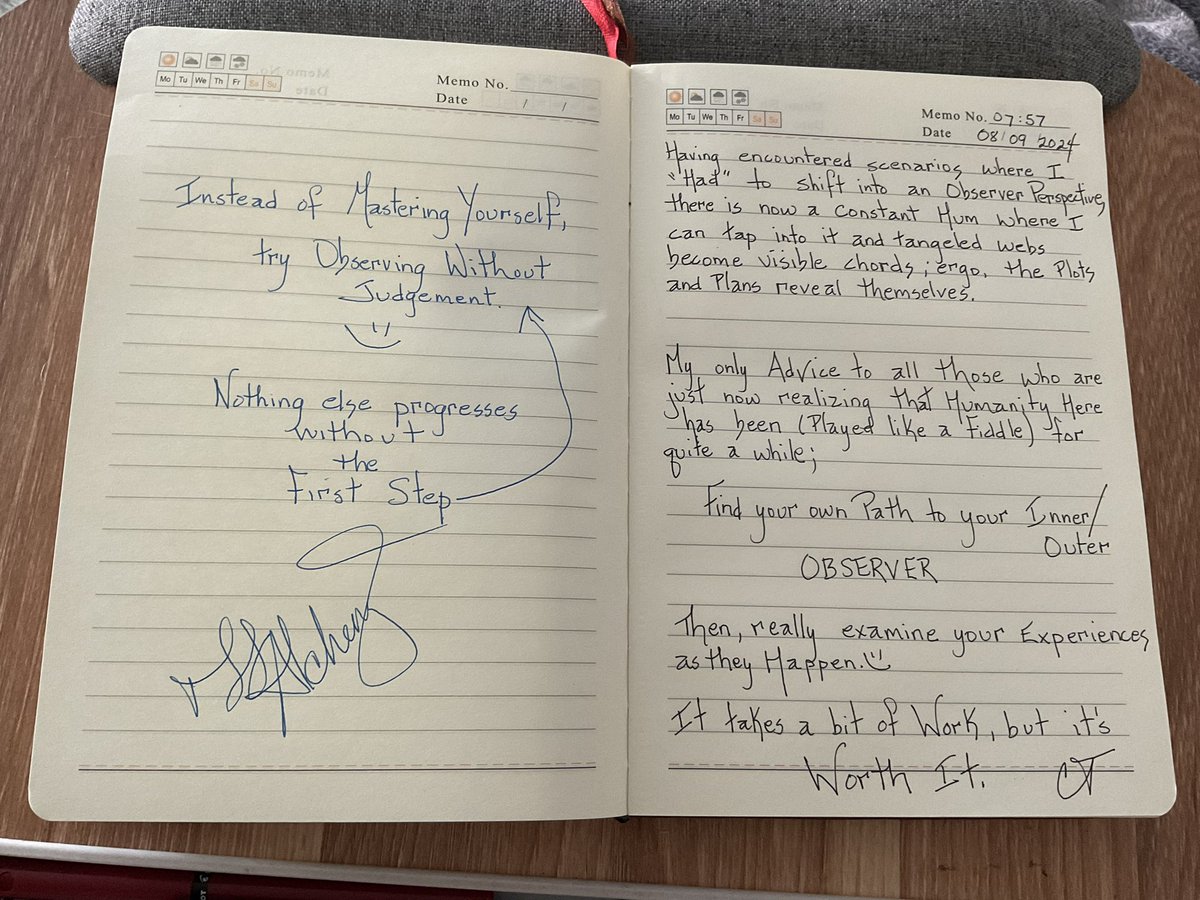 Mo Tu We Th Fr Sa Su
Memo No.
Date / /
Instead of Mastering Yourself,
try Observing Without
Judgement.
Nothing else progresses
without
the
First Step
Mo Tu We Th Fr Sa Su
Memo No. 07:57
Date 08/09/2024
Having encountered scenarios where I
"Had" to shift into an Observer Perspective,
there is now a constant Hum where I
can tap into it and tangeled webs
become visible chords; ergo, the Plots
and Plans reveal themselves.
My only Advice to all those who are
just now realizing that Humanity Here
has been (Played like a Fiddle) for
quite a while;
Find your own Path to your Inner/
Outer
OBSERVER
Then, really examine your Experiences
as they Happen.
It takes a bit of Work, but it's
Worth It. CT